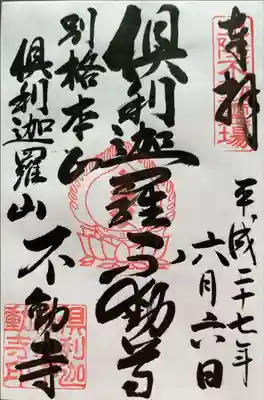 奉拝
平成二十七年
六月六日
倶利迦羅不動尊
別格本山
倶利迦羅山
不動寺
倶利迦
羅不動寺印